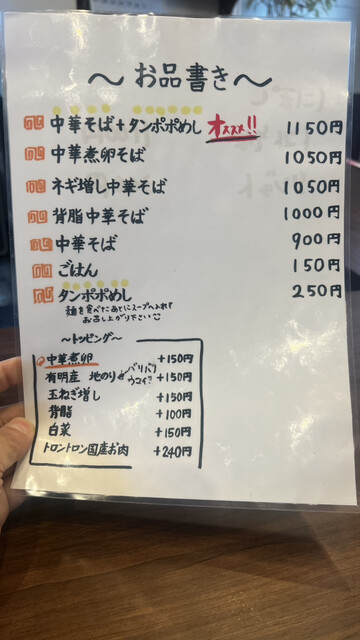 ～お品書き～
中華そば+タンポポめし オススメ!! 1150円
中華煮卵そば 1050円
ネギ増し中華そば 1050円
背脂中華そば 1000円
中華そば 900円
ごはん 150円
タンポポめし 250円
麺を食べたあとにスープへ入れて
お召し上がり下さい
～トッピング～
中華煮卵 +150円
有明産 地のり パリパリ ウマイ!! +150円
玉ねぎ増し +150円
背脂 +100円
白菜 +150円
トロントロン国産お肉 +240円